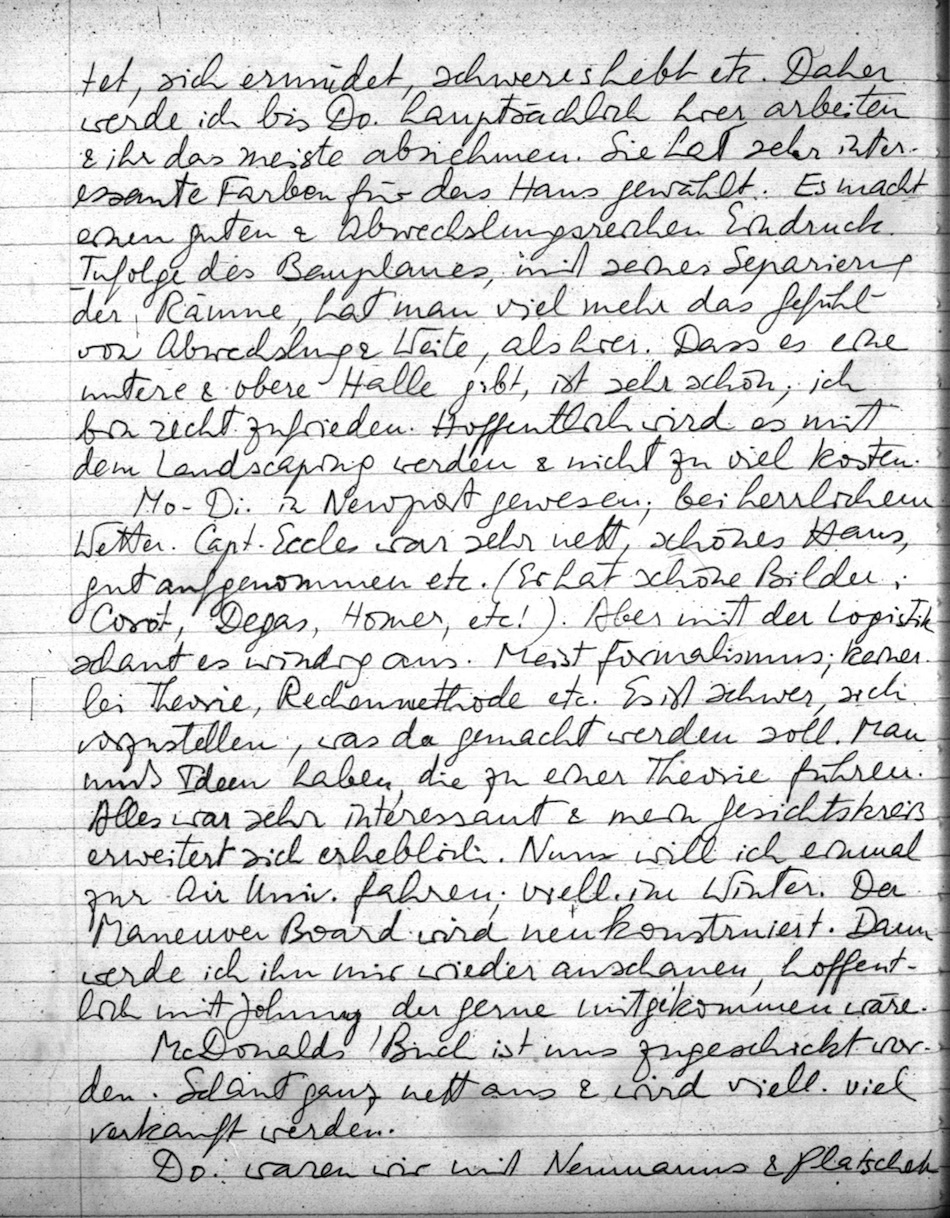 tet, sich ermüdet, schweres hebt etc. Daher
werde ich bis Do. hauptsächlich hier arbeiten
& ihr das meiste abnehmen. Sie hat sehr inter-
essante Farben für das Haus gewählt. Es macht
einen guten & abwechslungsreichen Eindruck.
Infolge des Bauplanes, mit seiner Separierung
der Räume, hat man viel mehr das Gefühl
von Abwechslung & Weite, als hier. Dass es eine
untere & obere Halle gibt, ist sehr schön; ich
bin recht zufrieden. Hoffentlich wird es mit
dem Landscaping werden & nicht zu viel kosten.
Mo-Di. in Newport gewesen; bei herrlichem
Wetter. Capt. Eccles war sehr nett, schönes Haus,
gut aufgenommen etc. (Er hat schöne Bilder:
Corot, Degas, Homer, etc!). Aber mit der Logistik
schaut es windig aus. Meist Formalismus; keiner-
lei Theorie, Rechenmethode etc. Es ist schwer, sich
vorzustellen, was da gemacht werden soll. Man
muss Ideen haben, die zu einer Theorie führen.
Alles war sehr interessant & mein Gesichtskreis
erweitert sich erheblich. Nun will ich einmal
zur Air Univ. fahren; viell. im Winter. Der
Maneuver Board wird neu konstruiert. Dann
werde ich ihn mir wieder anschauen, hoffent-
lich mit Johnny der gerne mitgekommen wäre.
McDonalds Buch ist uns zugeschickt wor-
den. Schaut ganz nett aus & wird viell. viel
verkauft werden.
Do. waren wir mit Neumanns & Platschek